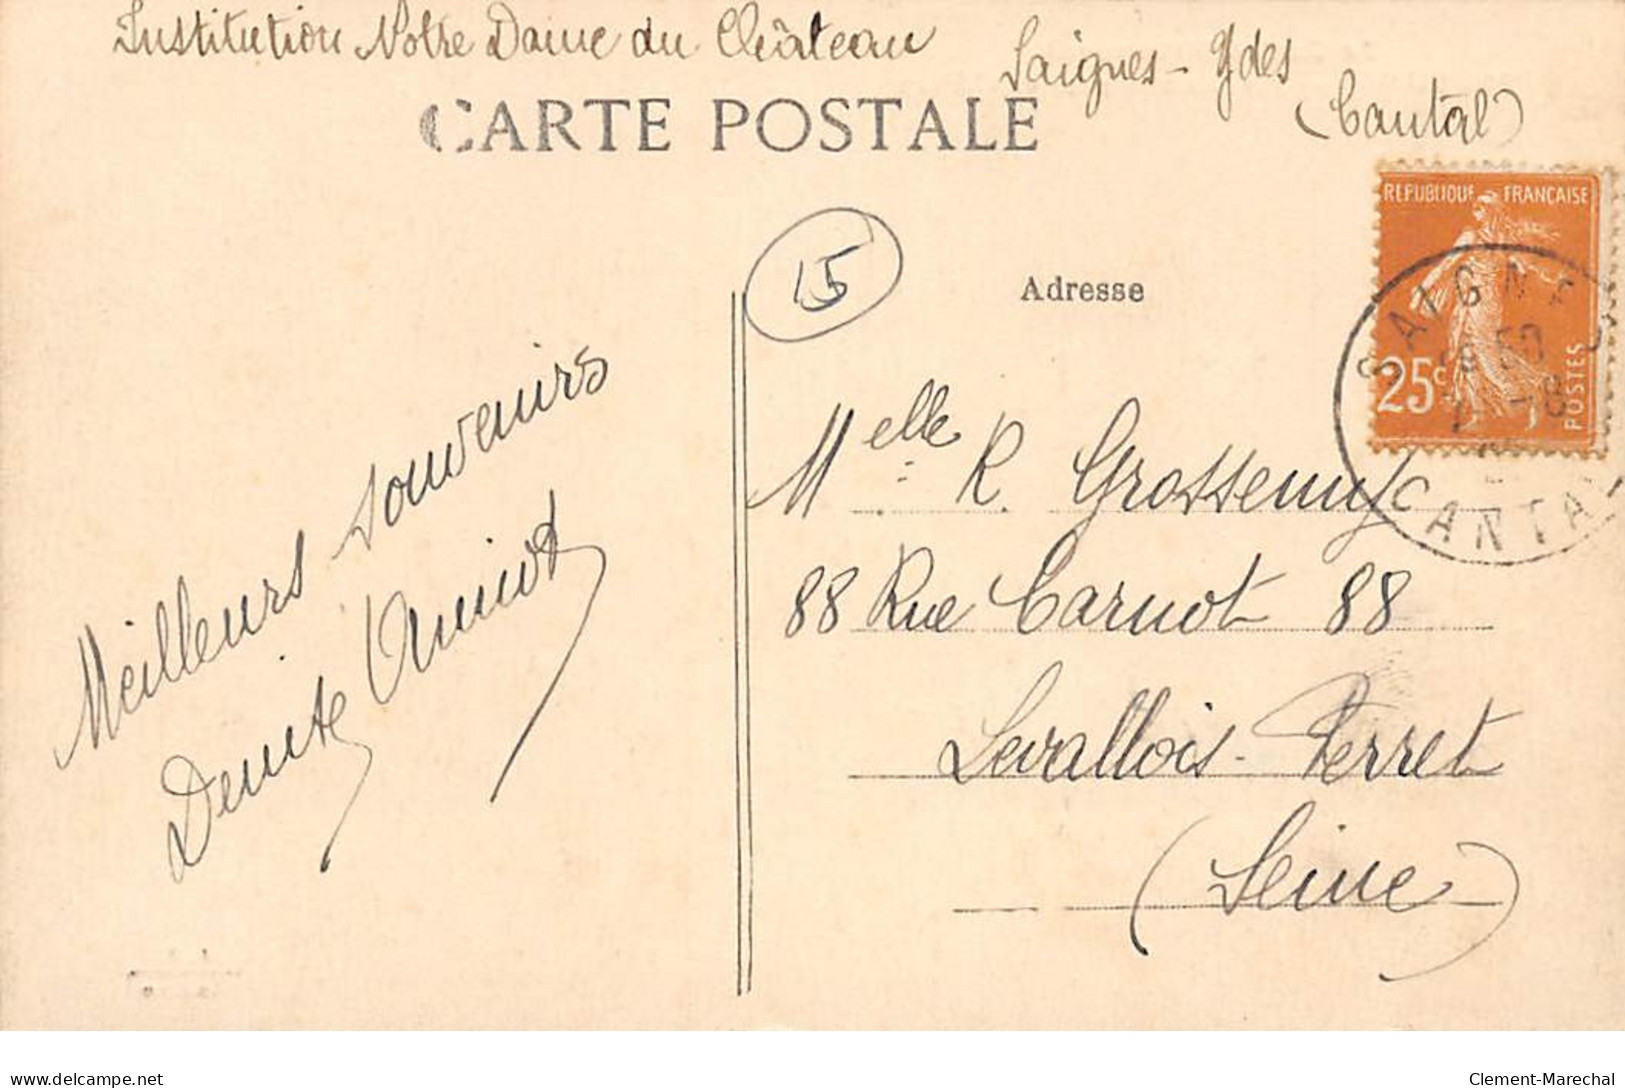 Institution Notre Dame du Château
Saignes - Ydes
(Cantal)
CARTE POSTALE
REPUBLIQUE FRANÇAISE
25c
POSTES
SAIGNES
CANTAL
15
Adresse
Melle R.
88 Rue Carnot 88
Levallois-Perret
(Seine)
Meilleurs souvenirs
delcampe.net
Clement-Marechal